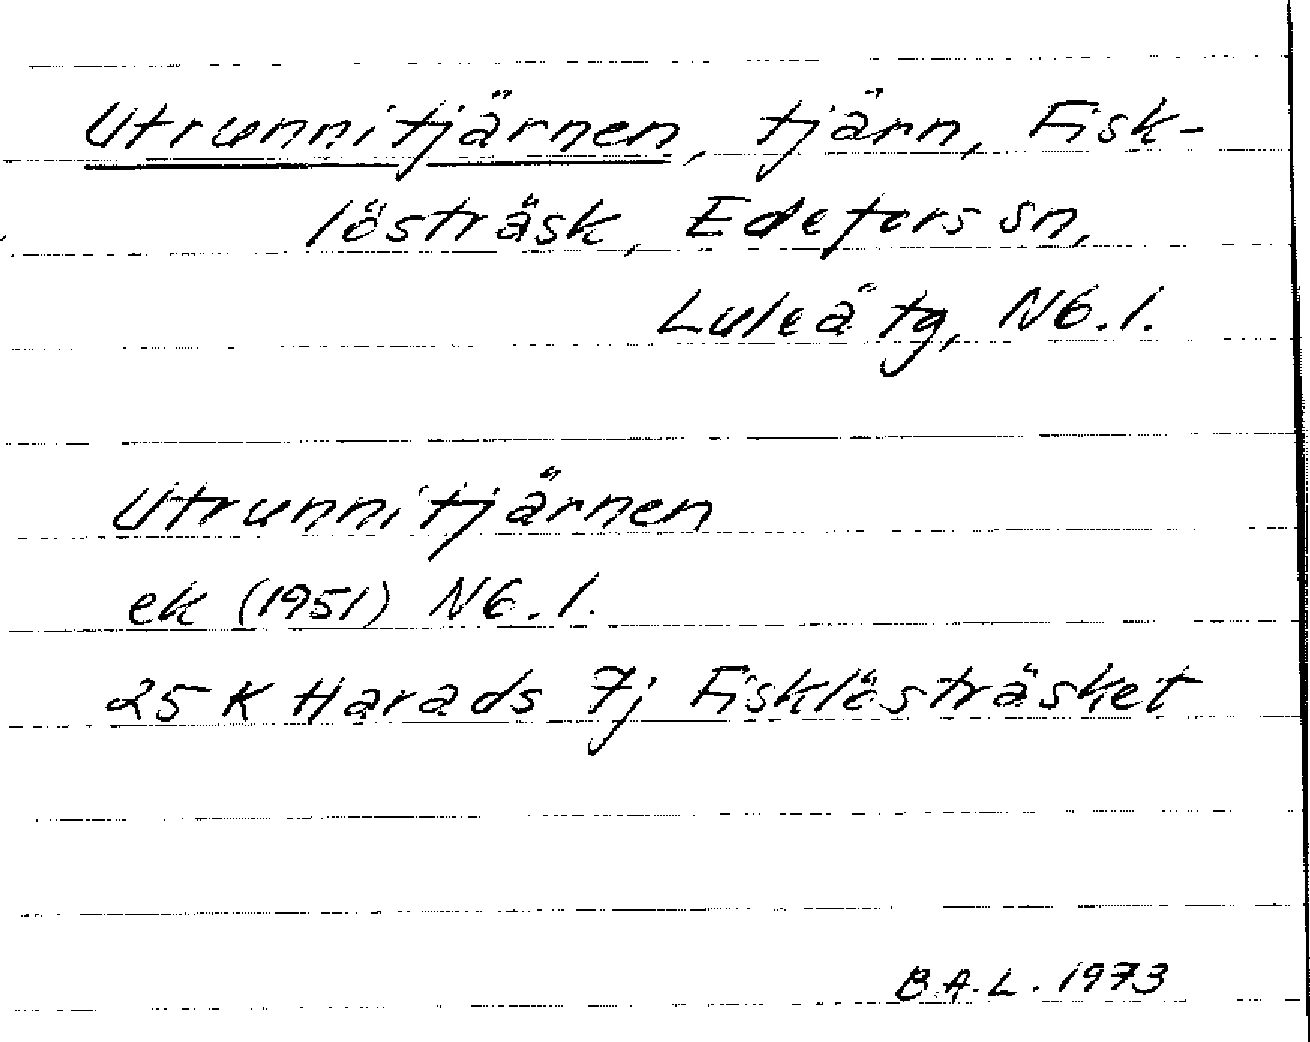 Utrunnitjärnen, tjärn, Fisk-
lösträsk, Edefors sn,
Luleå tg, Nb. l.
Utrunnitjärnen
ek (1951) Nb. l.
25 K Harads 7j Fisklösträsket
B.A.L. 1973